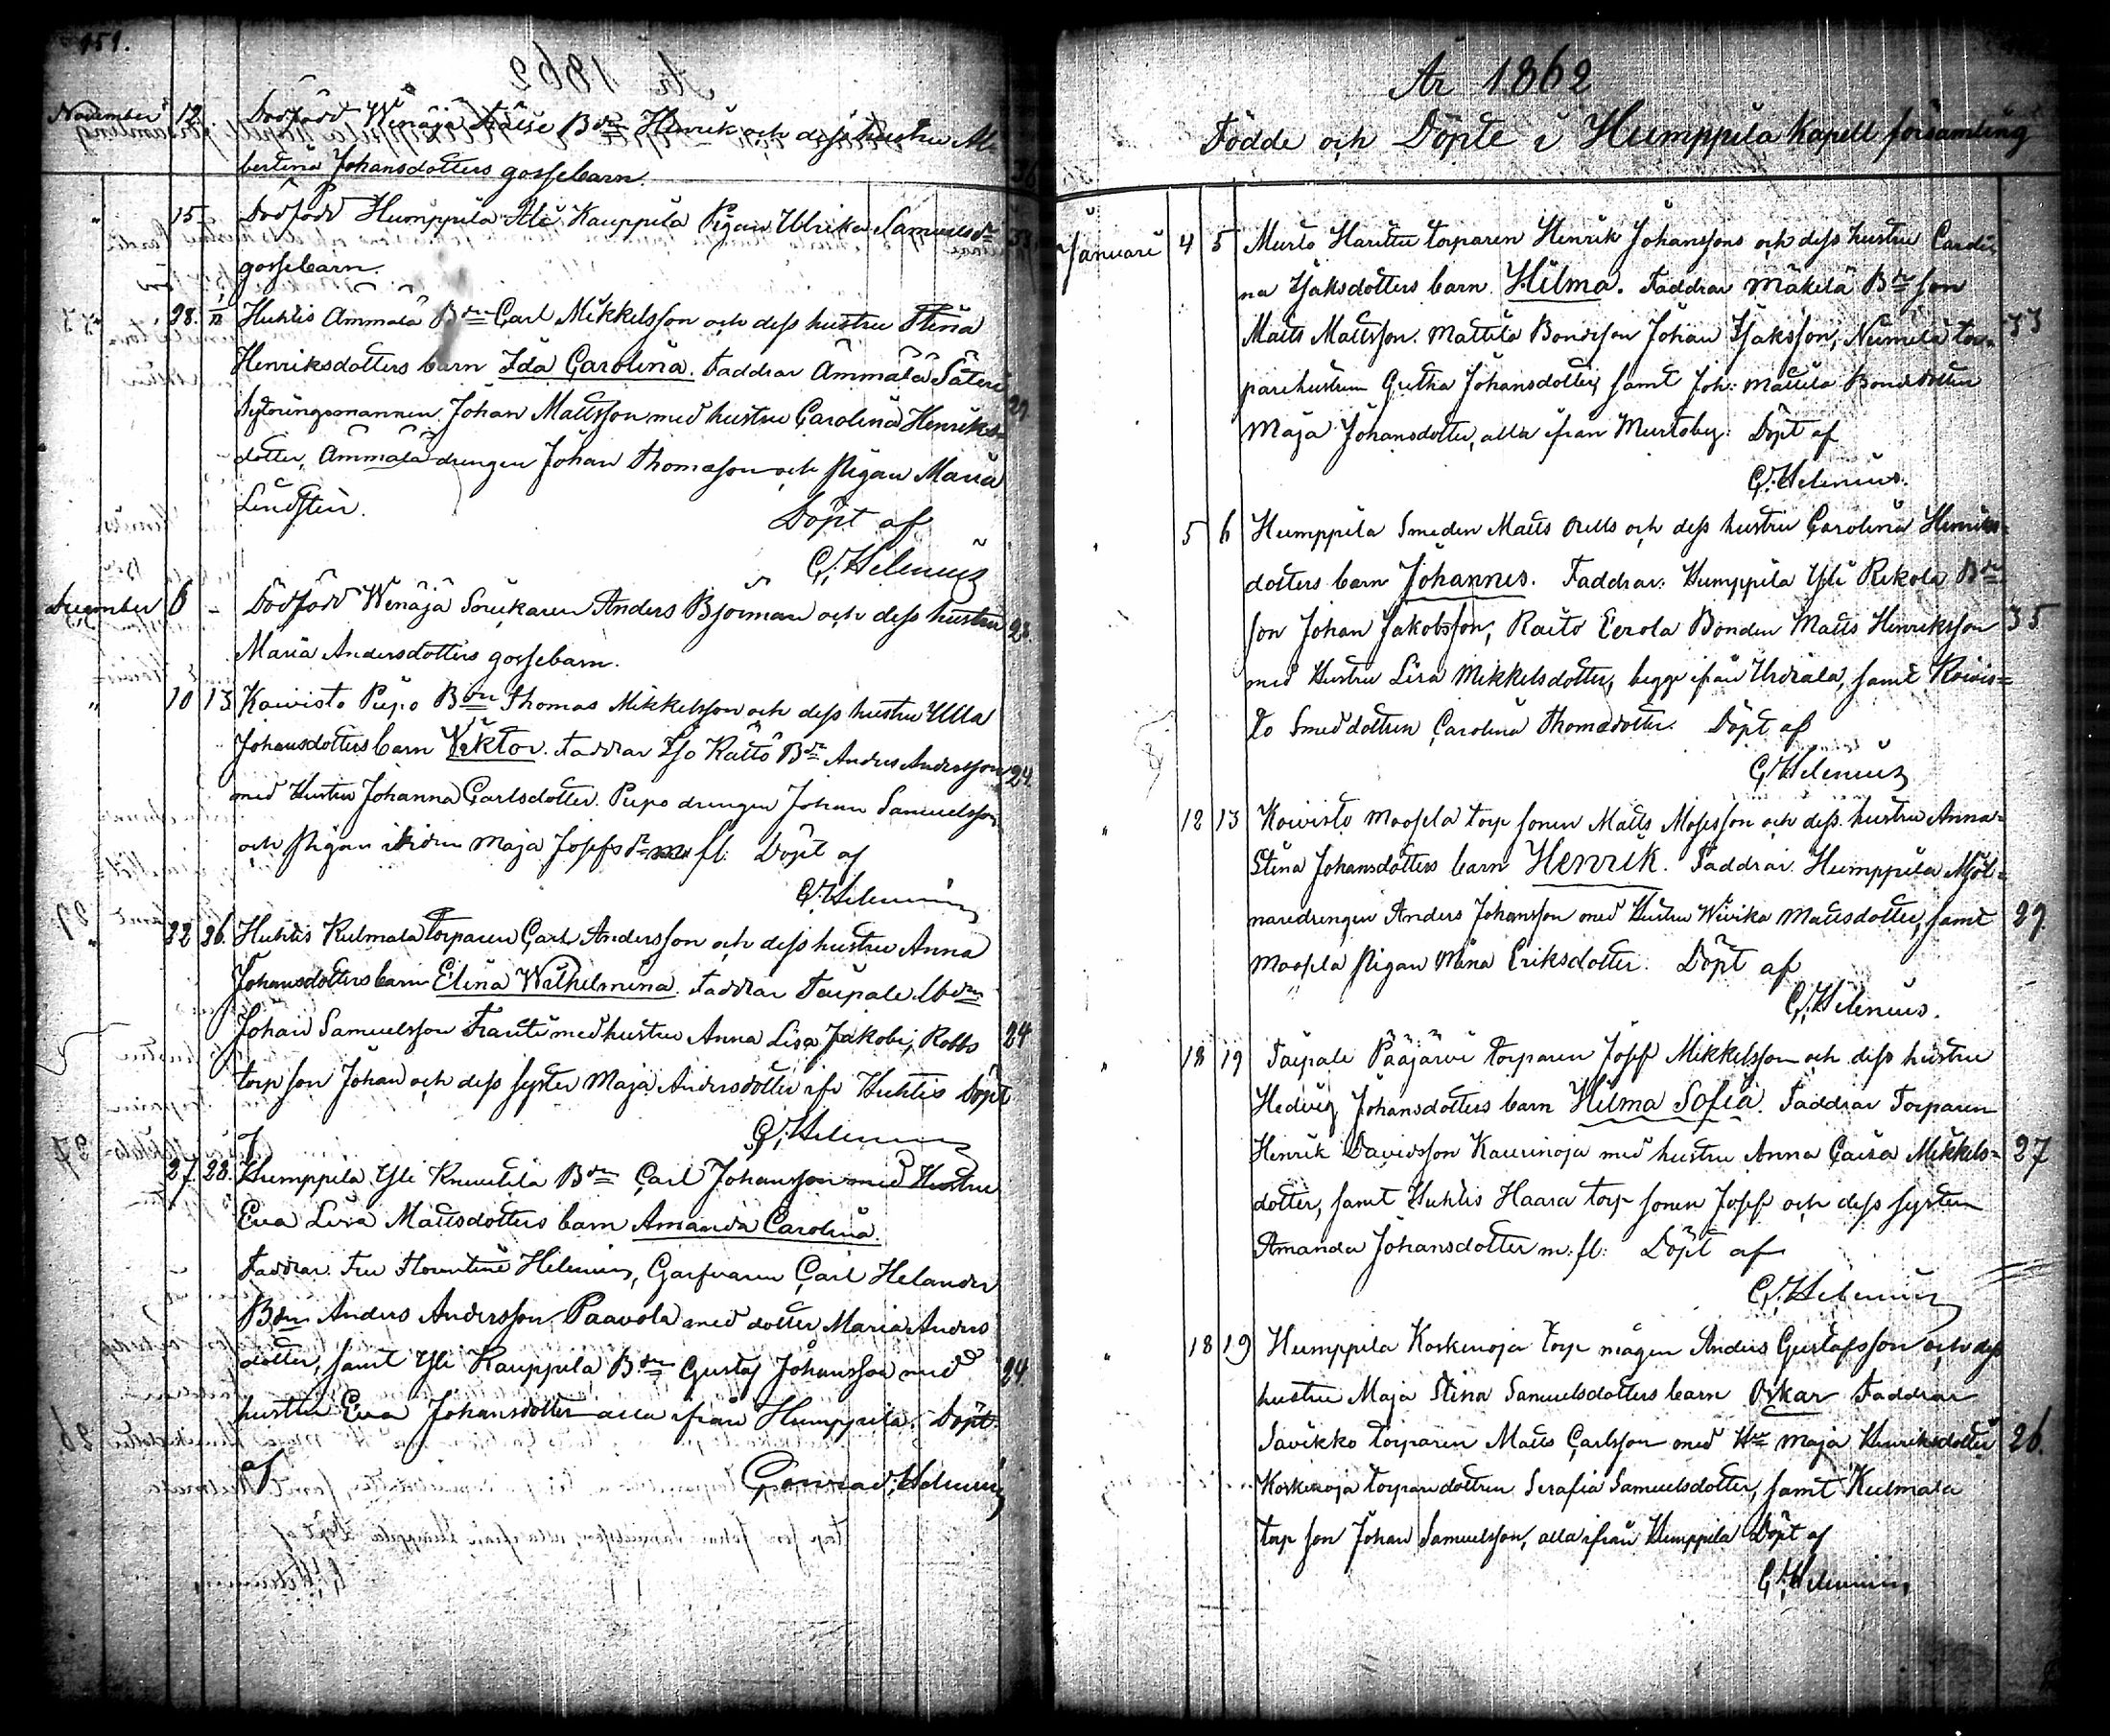 151.
November 12. Dödfödd Winäjä Bdn Henrik och dess hustru Al
bertina Johansdotters gossebarn. 36
" 15 Dödfödd Humppila Yli Kauppila Pigan Ulrika Samuelsdr 33
gossebarn.
" 28. Huhtis Ämmälä Bdn Carl Mikkelsson och dess hustru Stina
Henriksdotters barn Ida Carolina. Faddrar Ämmälä Säteri
Sytningsmannen Johan Mattsson med hustru Carolina Henriks- 29
dotter, Ämmälä drengen Johan Thomasson och Pigan Maria
Lindsten. Döpt af
C. Helenius
December 6 - Dödfödd Winäjä Anders Björman och dess hustru 28.
Maria Andersdotters gossebarn.
" 10 13 Koivisto Piipo Bdn Thomas Mikkelsson och dess hustru Ulla
Johansdotters barn Viktor. Faddrar Iso Rättö Bdn Anders Andersson 24
med Hustru Johanna Carlsdotter. Piipo drengen Johan Samuelsson
och Pigan Maja Josefsdr m. fl. Döpt af
C. Helenius
" 22 26. Huhtis Kulmala Torparen Carl Andersson och dess hustru Anna
Johansdotters barn Elina Wilhelmina. Faddrar Taipale
Johan Samuelsson Frantti med hustru Anna Lisa Jakobi, Robbs 24
torp son Johan och dess syster Maja Andersdotter ifr Huhtis Döpt
af C. Helenius
27 28. Humppila Yli Knuutila Bdn Carl Johansson med Hustru
Eva Lisa Mattsdotters barn Amanda Carolina.
Faddrar. Fru Florentine Helenius, Garfvaren Carl Helander
Bdn Anders Andersson Paavola med dotter Maria Anders
dotter, samt Yli Kauppila Bdn Gustaf Johansson med 24
hustru Eva Johansdotter alla ifrån Humppila. Döpt
af Conrad Helenius
År 1862
Födde och Döpte i Humppila Kapell församling
Januari 4 5 Murto Harittu torparen Henrik Johanssons och dess hustru Caroli
na Isaksdotters barn Hilma. Faddrar Mäkilä Bdn son
Matts Mattsson. Mattila Bondeson Johan Isaksson, Niemelä tor- 33
parehustrun Gretha Johansdotter, samt Joh: Mattila Bondedotter
Maja Johansdotter, alla ifrån Murtoby. Döpt af
C. Helenius.
" 5 6 Humppila Smeden Matts och dess hustru Carolina Henriks-
dotters barn Johannes. Faddrar: Humppila Yli Rekola Bde
son Johan Jakobsson, Raito Eerola Bonden Matts Henriksson 35
med Hustru Lisa Mikkelsdotter, begge ifrån Urdiala, samt Koivis-
to Smeddottren Carolina Thomedotter. Döpt af
C. Helenius
" 12 13 Koivisto Moosla torp sonen Matts Mosesson och dess hustru Anna-
Stina Johansdotters barn Henrik. Faddrar. Humppila Mjöl-
naredrengen Anders Johansson med Hustru Wivika Mattsdotter, samt 29.
Moosla Pigan Mina Eriksdotter. Döpt af
C. Helenius.
" 18 19 Taipale Pääjärvi torparen Josef Mikkelsson och dess hustru
Hedvig Johansdotters barn Hilma Sofia. Faddrar Torparen
Henrik Davidsson Kaurinoja med hustru Anna Caisa Mikkels- 27
dotter, samt Huhtis Haara torp sonen Josef och dess syster
Amanda Johansdotter m. fl: Döpt af
C. Helenius
" 18 19 Humppila Koskenoja torp mågen Anders Gustafsson och dess
hustru Maja Stina Samuelsdotters barn Oskar Faddrar
Savikko torparen Matts Carlsson med Hu Maja Henriksdotter 26.
Koskenoja torparedottren Serafia Samuelsdotter, samt Kulmala
torp son Johan Samuelsson, alla ifrån Humppila Döpt af
C. Helenius